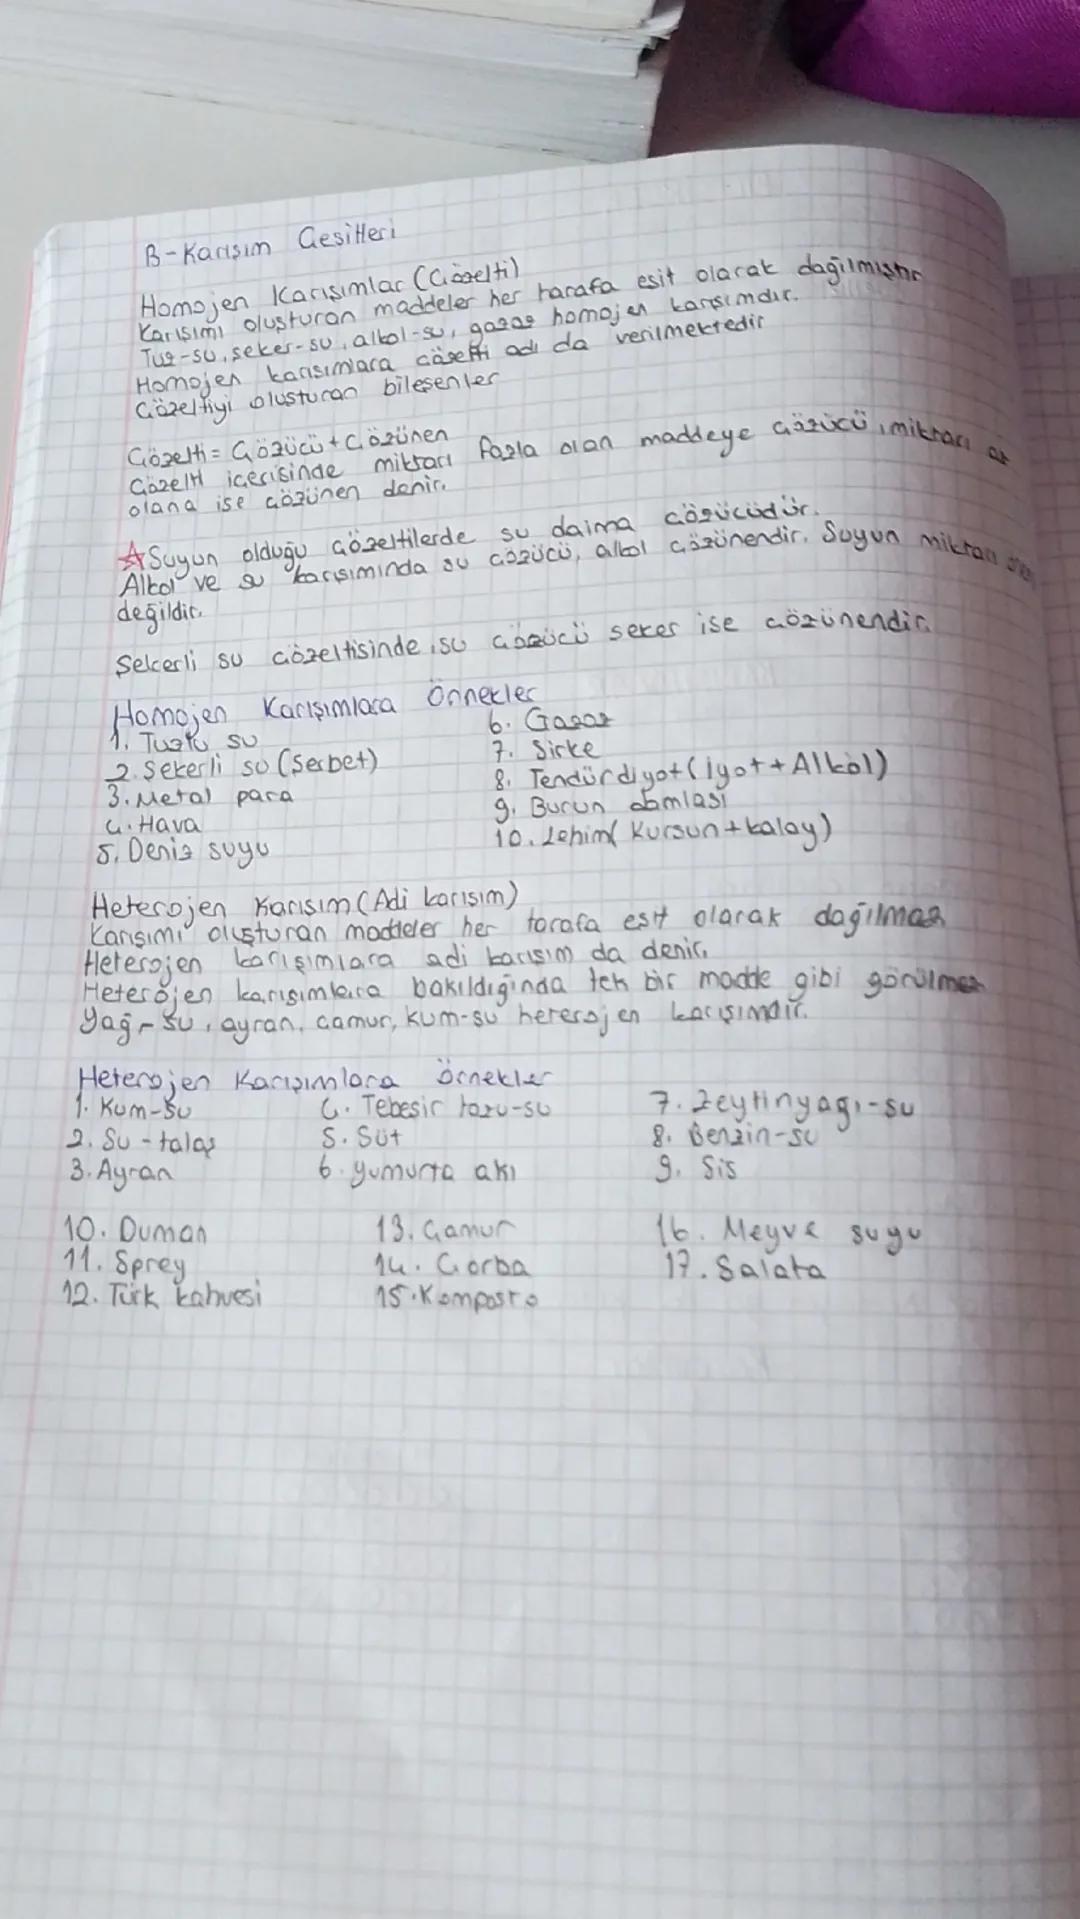 B-Karışım Çeşitleri
Homojen Karışımlar (Çözelti)
Karışımı oluşturan maddeler her tarafa eşit olarak dağılmıştır
Tuz-su, şeker-su, alkol-su, gazoz homojen karışımdır.
Homojen karışımlara çözelti adı da verilmektedir
Çözeltiyi oluşturan bileşenler
Çözelti = Çözücü + Çözünen
Çözelti içerisinde miktarı fazla olan maddeye çözücü, miktarı az
olana ise çözünen denir.
☆ Suyun olduğu çözeltilerde su daima çözücüdür.
Alkol ve su karışımında su çözücü, alkol çözünendir. Suyun miktarı
değildir.
Şekerli su çözeltisinde, su çözücü şeker ise çözünendir.
Homojen Karışımlara Örnekler
1. Tuzlu su
2. Şekerli su (Şerbet)
3. Metal para
4. Hava
5. Deniz suyu
6. Gazoz
7. Sirke
8. Tendürdiyot (İyot + Alkol)
9. Burun damlası
10. Lehim (Kurşun + kalay)
Heterojen Karışım (Adi karışım)
Karışımı oluşturan maddeler her tarafa eşit olarak dağılmaz
Heterojen karışımlara adi karışım da denir.
Heterojen karışımlara bakıldığında tek bir madde gibi görülmez
Yağ-su, ayran, çamur, kum-su heterojen karışımdır.
Heterojen Karışımlara Örnekler
1. Kum-su
2. Su-talaş
3. Ayran
4. Tebeşir tozu-su
5. Süt
6. Yumurta akı
7. Zeytinyağı-su
8. Benzin-su
9. Sis
10. Duman
11. Sprey
12. Türk kahvesi
13. Çamur
14. Çorba
15. Komposto
16. Meyve suyu
17. Salata